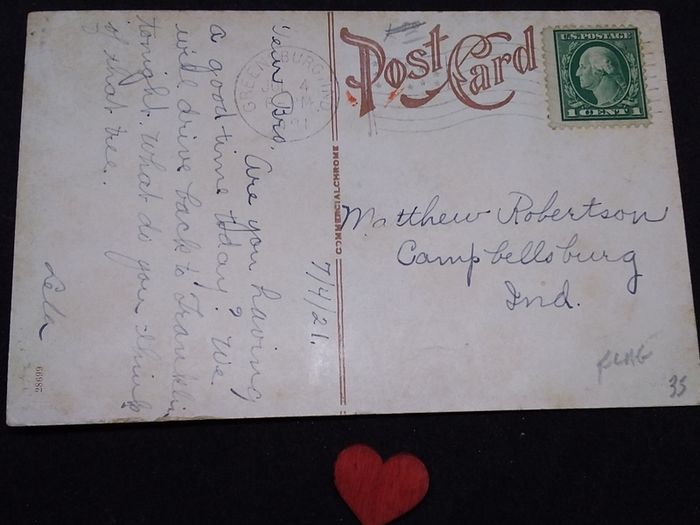 Post Card
U.S. POSTAGE
1 CENT 1
GREENSBURG, IND.
COMMERCIALCHROME
7/4/21.
Dear Bro.
Are you having
a good time today? We
will drive back to Franklin
tonight. What do you think
of that tree.
Lela
Matthew Robertson
Campbellsburg
Ind.
FLAG
35
28699